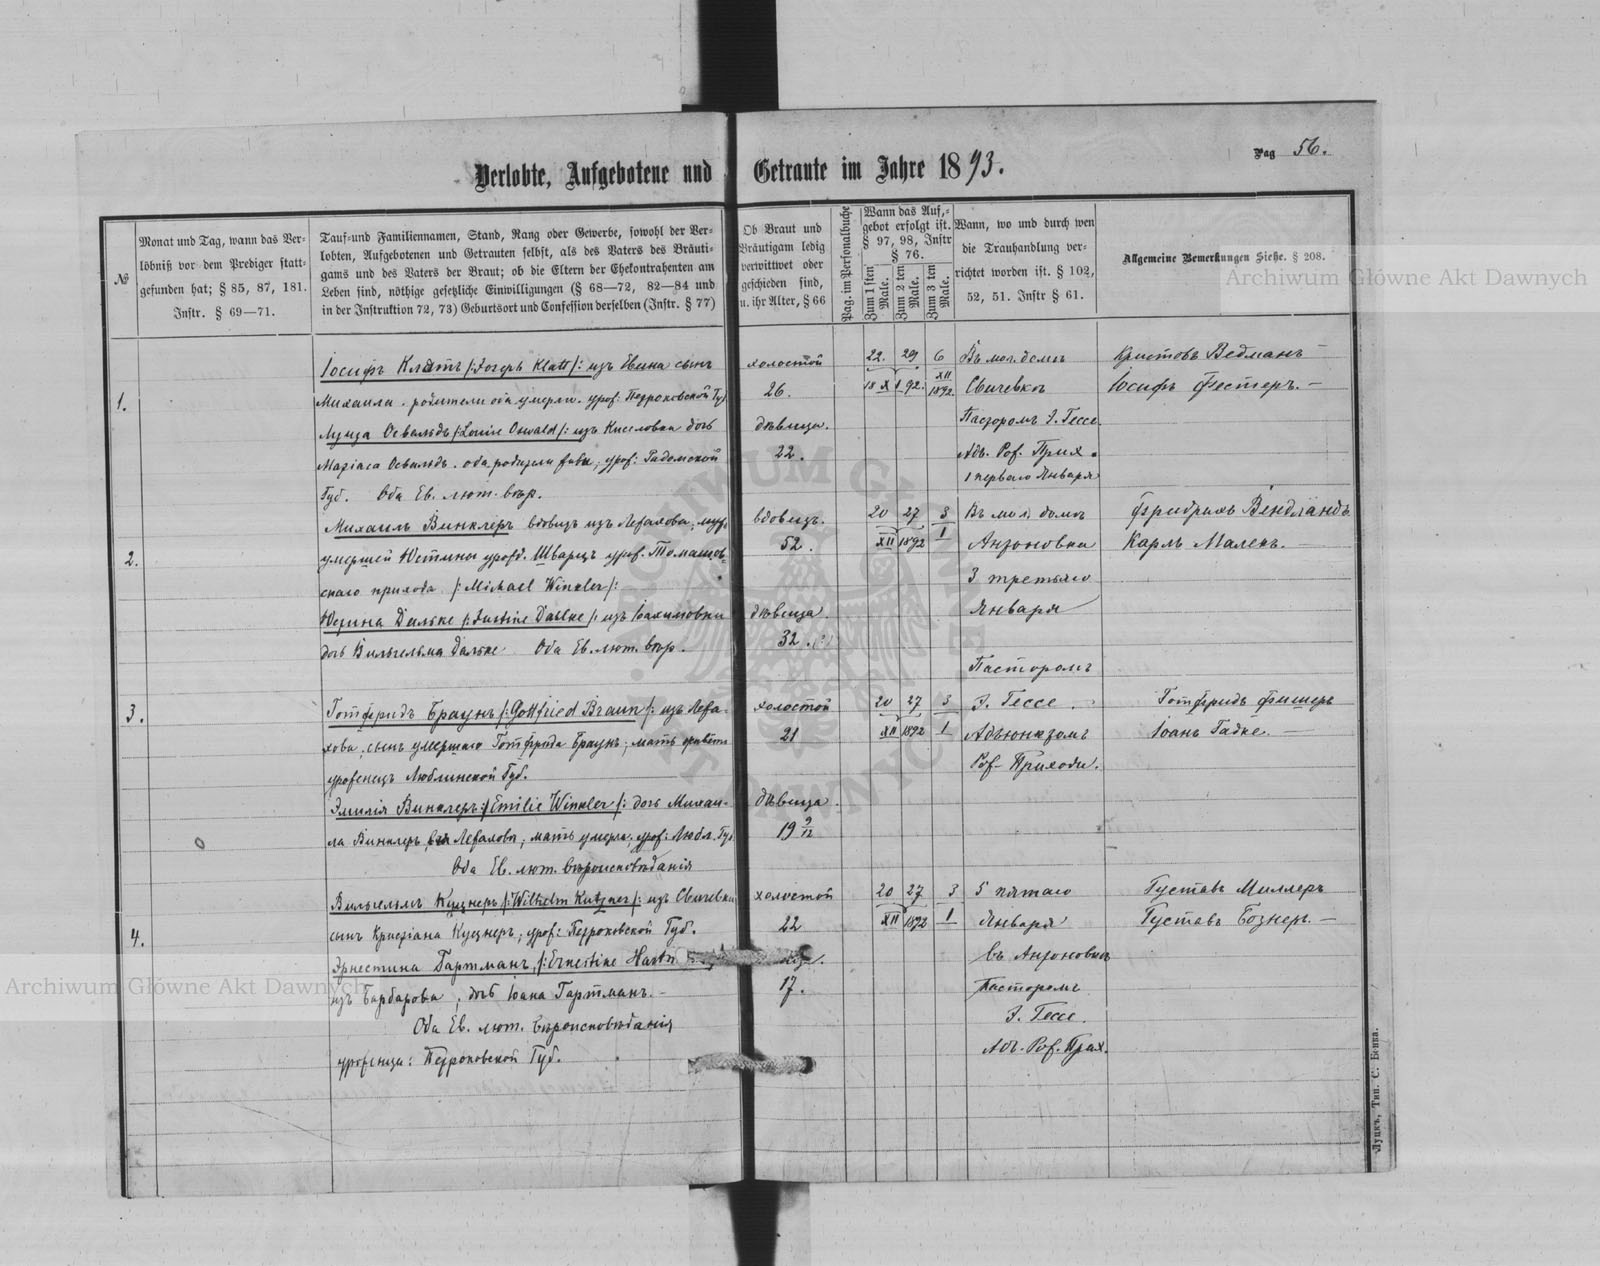 Pag 56.
Verlobte, Aufgebotene und Getraute im Jahre 1893.
№
Monat und Tag, wann das Ver-
löbniß vor dem Prediger statt-
gefunden hat; § 85, 87, 181.
Instr. § 69—71.
Tauf-und Familiennamen, Stand, Rang oder Gewerbe, sowohl der Ver-
lobten, Aufgebotenen und Getrauten selbst, als des Vaters des Bräuti-
gams und des Vaters der Braut; ob die Eltern der Ehekontrahenten am
Leben sind, nöthige gesetzliche Einwilligungen (§ 68—72, 82—84 und
in der Instruktion 72, 73) Geburtsort und Confession derselben (Instr. § 77)
Ob Braut und
Bräutigam ledig
verwittwet oder
geschieden sind,
u. ihr Alter, § 66
Pag. im Personalbuche
Wann das Auf-
gebot erfolgt ist.
§ 97, 98, Instr
§ 76.
Zum 1 sten Male.
Zum 2 ten Male.
Zum 3 ten Male.
Wann, wo und durch wen
die Trauhandlung ver-
richtet worden ist. § 102,
52, 51. Instr § 61.
Allgemeine Bemerkungen Siehe. § 208.
Archiwum Główne Akt Dawnych
1.
Іосифъ Клаттъ /:Joseph Klatt:/ изъ сынъ
Михаила. родители оба умерли. урож: Петроковской Губ
Луиза Освальдъ /:Louise Oswald:/ изъ Киселовки дочь
Матіаса Освальдъ. оба родители живы, урож: Радомской
Губ. Оба Ев. лют. вѣр.
холостой
26.
дѣвица.
22.
22. 29 6
18 X 1 92. XII 1892.
Въ мол. домѣ
Свичевкѣ
Пасторомъ Э. Гессе.
Адъ. Рож. Прих.
1 перваго Января
Христовъ Ведманъ
Іосифъ Фестеръ. —
2.
Михаилъ Винклеръ вдовецъ изъ мужъ
умершей Юстины урожд. Шварцъ урож. Томашов-
скаго прихода /:Michael Winkler:/
Юстина Дальке /:Justine Dahlke:/ изъ Іоахимовки
дочь Вильгельма Дальке Оба Ев. лют. вѣр.
вдовецъ.
52.
дѣвица.
32.
20 27 3
XII 1892 I
Въ мол. домѣ
Антоновка
3 третьяго
Января
Пасторомъ
Э. Гессе.
Адъюнктомъ
Рож. Прихода.
Фридрихъ Вендландъ
Карлъ Малекъ. —
3.
Готфридъ Браунъ /:Gottfried Braun:/ изъ
сынъ умершаго Готфрида Браунъ, мать
уроженецъ Люблинской Губ.
Эмилія Винклеръ /:Emilie Winkler:/ дочь Михаи-
ла Винклеръ мать умерла, урож: Любл. Губ
Оба Ев. лют. вѣроисповѣданія
холостой
21
дѣвица.
19 9/12
20 27 3
XII 1892 I
Готфридъ Фишеръ
Іоанъ Гадке. —
4.
Вильгельмъ Куцнеръ /:Wilhelm Kutzner:/ изъ Свичевки
сынъ Христіана Куцнеръ, урож: Петроковской Губ.
Эрнестина Гартманъ, /:Ernestine
изъ Барбарова, дочь Іоана Гартманъ. —
Оба Ев. лют. вѣроисповѣданія
уроженцы: Петроковской Губ.
холостой
22
17.
20 27 3
XII 1892 I
5 пятаго
Января
въ Антоновкѣ
Пасторомъ
Э. Гессе.
Адъ. Рож. Прих.
Густавъ Миллеръ
Густавъ Бознеръ. —
Archiwum Główne Akt Dawnych
Луцкъ, Тип. С. Бенка.